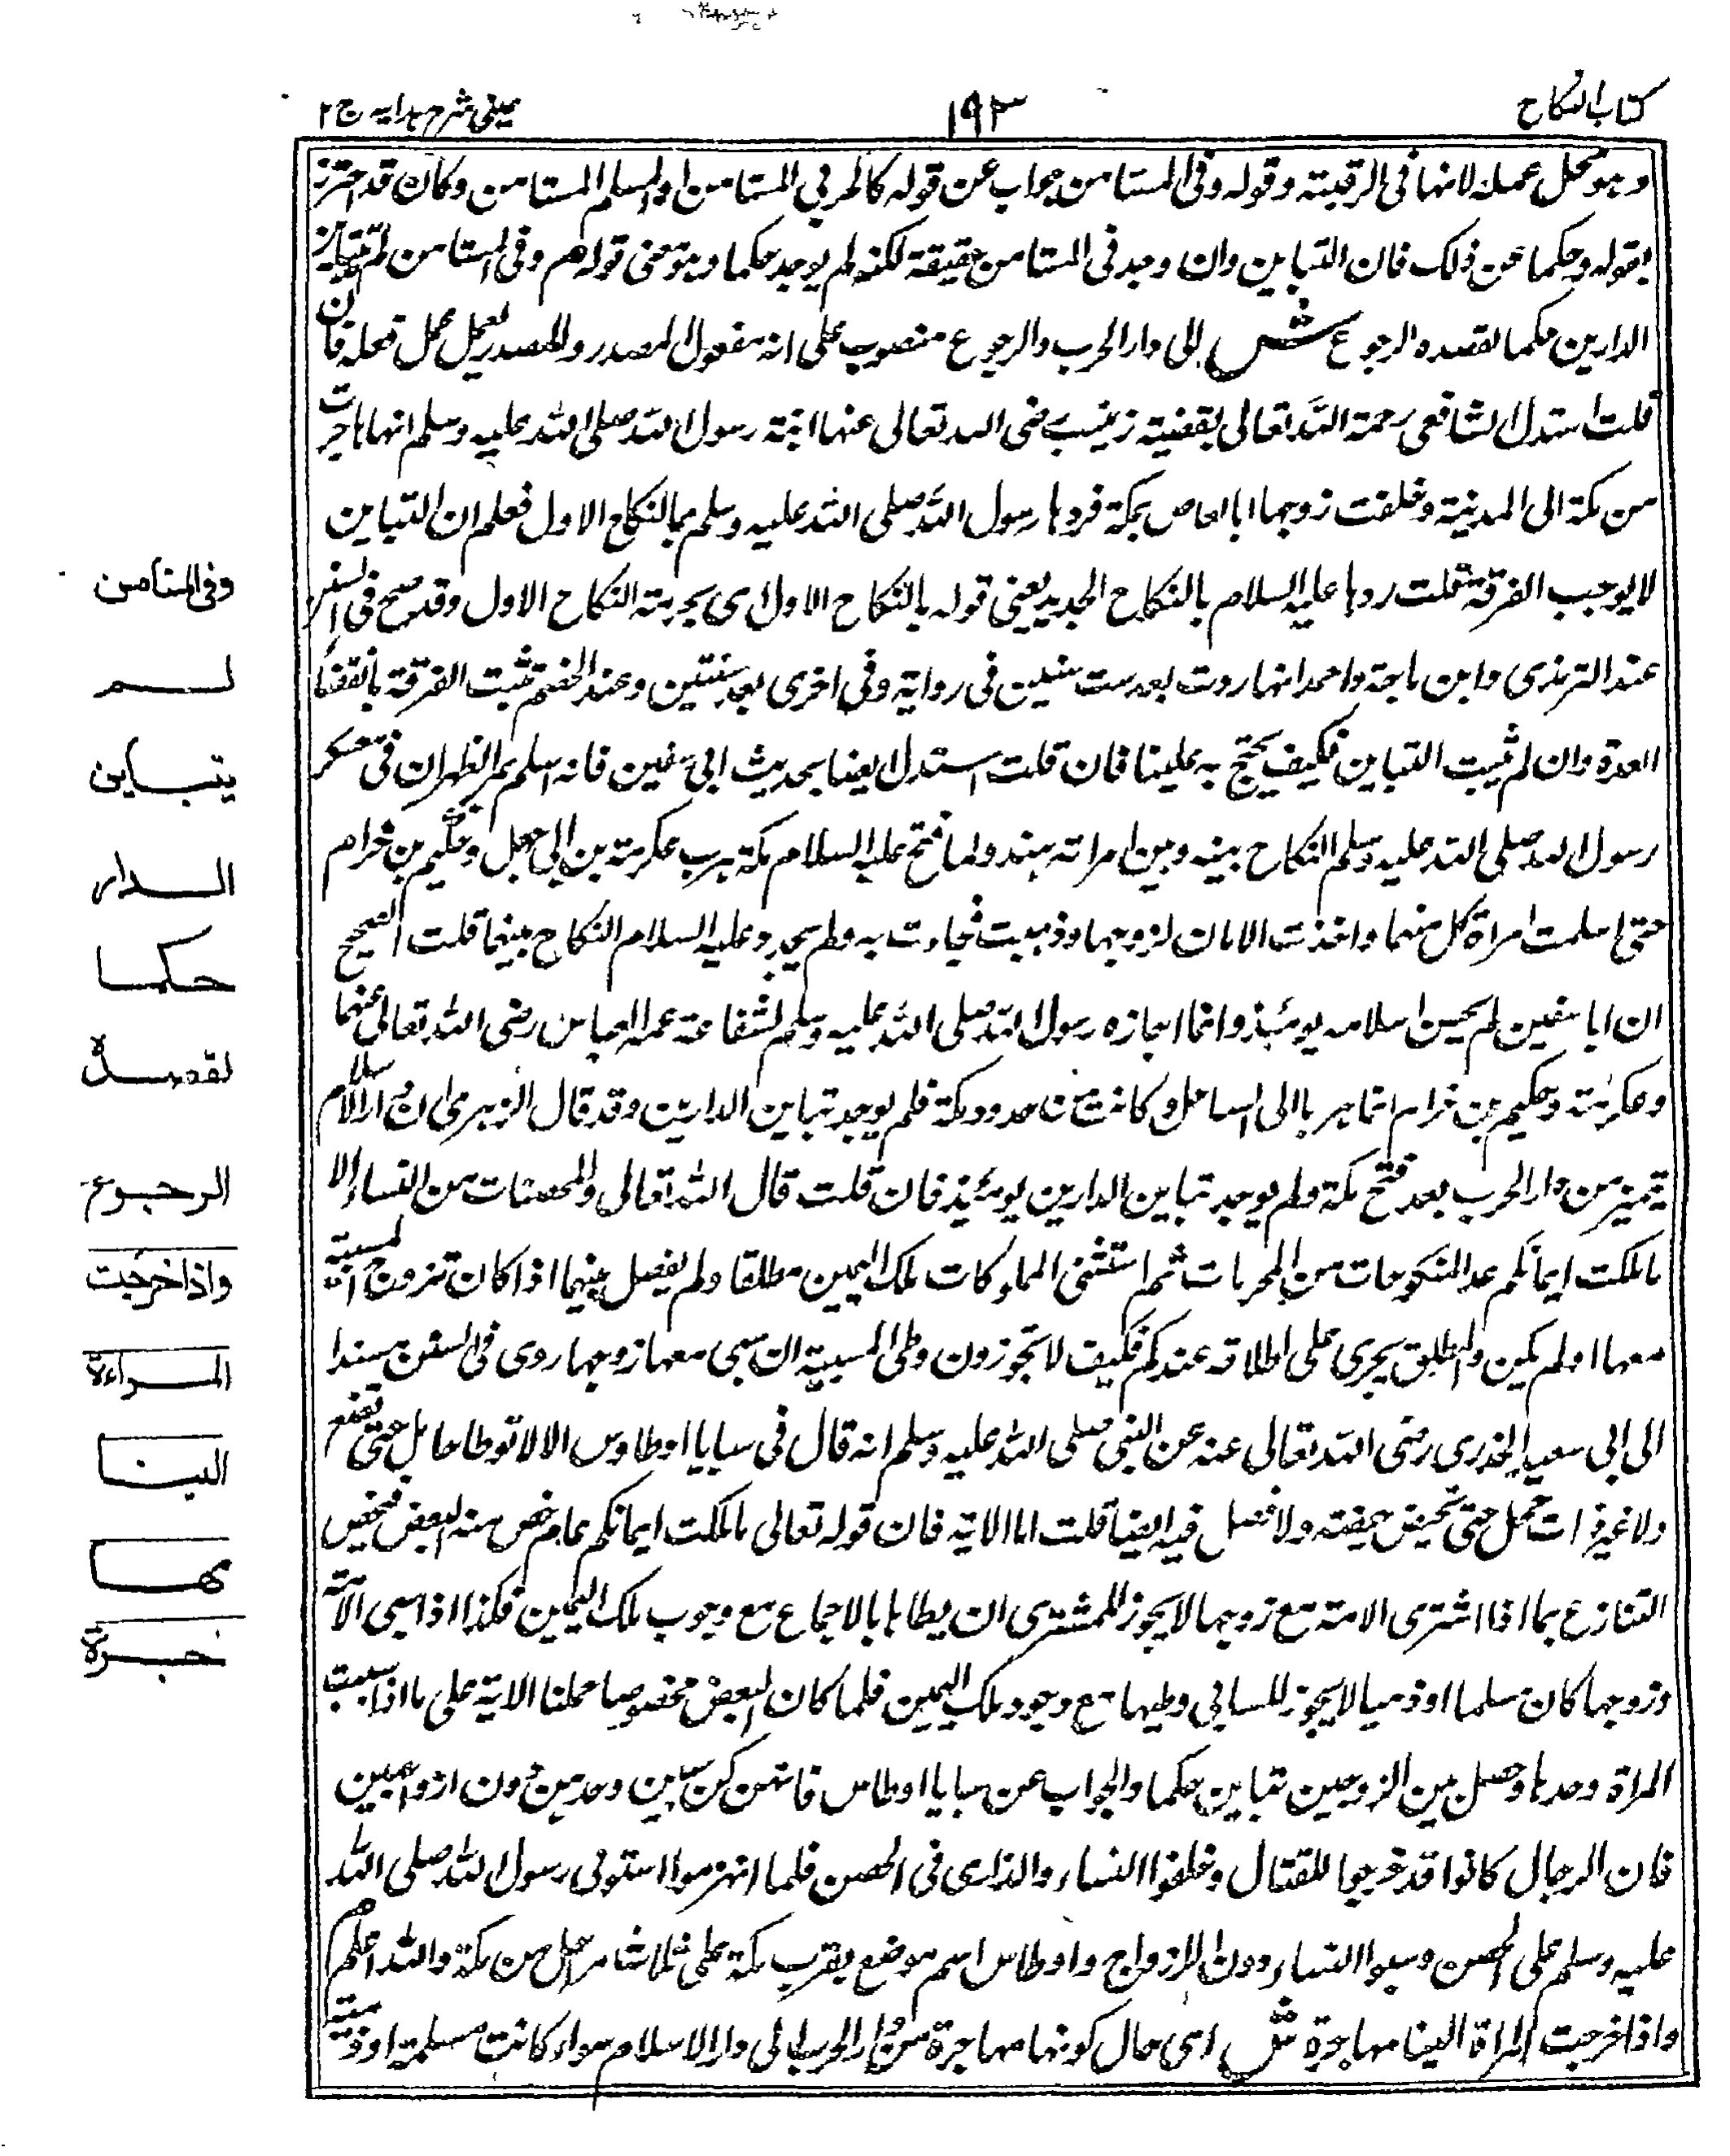 كتاب النكاح
١٩٣
عینی شرح ہدایہ ج ۲
وهو محل عمله لانها فى الرقبة وقوله وفى المستامن جواب عن قوله كالحربي المستامن او المسلم المستامن وكان قد احترز
بقوله وحكما عن ذلك فان التباين وان وجد فى المستامن حقيقة لكنه لم يوجد حكما وهو معنى قوله م وفى المستامن لم يتباين
الدارين حكما لقصده الرجوع ش الى دار الحرب والرجوع منصوب على انه مفعول المصدر والمصدر يعمل عمل فعله فان
قلت استدل الشافعى رحمة الله تعالى بقضية زينب رضى الله تعالى عنها ابنة رسول الله صلى الله عليه وسلم انها هاجرت
من مكة الى المدينة وخلفت زوجها ابا العاص بمكة فردها رسول الله صلى الله عليه وسلم بالنكاح الاول فعلم ان التباين
لا يوجب الفرقة قلت ردها عليه السلام بالنكاح الجديد يعنى قوله بالنكاح الاول اى بحرمة النكاح الاول وقد صح فى السنن
عند الترمذى وابن ماجة واحمد انها ردت بعد ست سنين فى رواية وفى اخرى بعد سنتين وعند الخصم تثبت الفرقة بانقضاء
العدة وان لم يثبت التباين فكيف يحتج به علينا فان قلت استدل ايضا بحديث ابى سفين فانه اسلم بمر الظهران فى معسكر
رسول الله صلى الله عليه وسلم النكاح بينه وبين امراته هند ولما فتح عليه السلام مكة هرب عكرمة بن ابى جهل وحكيم بن حزام
حتى اسلمت امراة كل منهما واخذت الامان لزوجها وذهبت فجاءت به ولم يجدد عليه السلام النكاح بينهما قلت الصحيح
ان ابا سفين لم يحسن اسلامه يومئذ وانما اجازه رسول الله صلى الله عليه وسلم لشفاعة عمه العباس رضى الله تعالى عنهما
وعكرمة وحكيم بن حزام انما هربا الى الساحل وكانت من حدود مكة فلم يوجد تباين الدارين وقد قال الزهرى ان دار الاسلام
تميز من دار الحرب بعد فتح مكة ولم يوجد تباين الدارين يومئذ فان قلت قال الله تعالى والمحصنات من النساء الا
ما ملكت ايمانكم عد المنكوحات من المحرمات ثم استثنى المملوكات بملك اليمين مطلقا ولم يفصل بينهما اذا كان تزوج المسبية
معها او لم يكن والمطلق يجرى على اطلاقه عندكم فكيف لا تجوزون وطى المسبية ان سبى معها زوجها روى فى السنن مسندا
الى ابى سعيد الخدرى رضى الله تعالى عنه عن النبى صلى الله عليه وسلم انه قال فى سبايا اوطاوس الا لا توطا حامل حتى تضع
ولا غير ذات حمل حتى تحيض حيضة ولا فصل فيه ايضا قلت اما الاية فان قوله تعالى ما ملكت ايمانكم عام خص منه البعض فيخص
التنازع بما اذا اشترى الامة مع زوجها لا يجوز للمشترى ان يطاها بالاجماع مع وجوب ملك اليمين فكذا اذا سبى الامة
وزوجها كان مسلما او ذميا لا يجوز للسابى وطيها مع وجود ملك اليمين فلما كان البعض مخصوصا حملنا الاية على ما اذا سبيت
المراة وحدها وحصل بين الزوجين تباين حكما والجواب عن سبايا اوطاس فانهن كن سبين وحدهن دون ازواجهن
فان الرجال كانوا قد خرجوا للقتال وخلفوا النساء والذرارى فى الحصن فلما انهزموا استولى رسول الله صلى الله
عليه وسلم على الحصن وسبوا النساء دون الازواج واوطاس اسم موضع بقرب مكة على ثلاث مراحل من مكة والله اعلم م
واذا خرجت المراة الينا مهاجرة ش اى حال كونها مهاجرة من دار الحرب الى دار الاسلام سواء كانت مسلمة او ذمية
وفى المستامن
لم
يتباين
الدار
حكما
لقصده
الرجوع
واذا خرجت
المراءة
الينا
مها
جرة